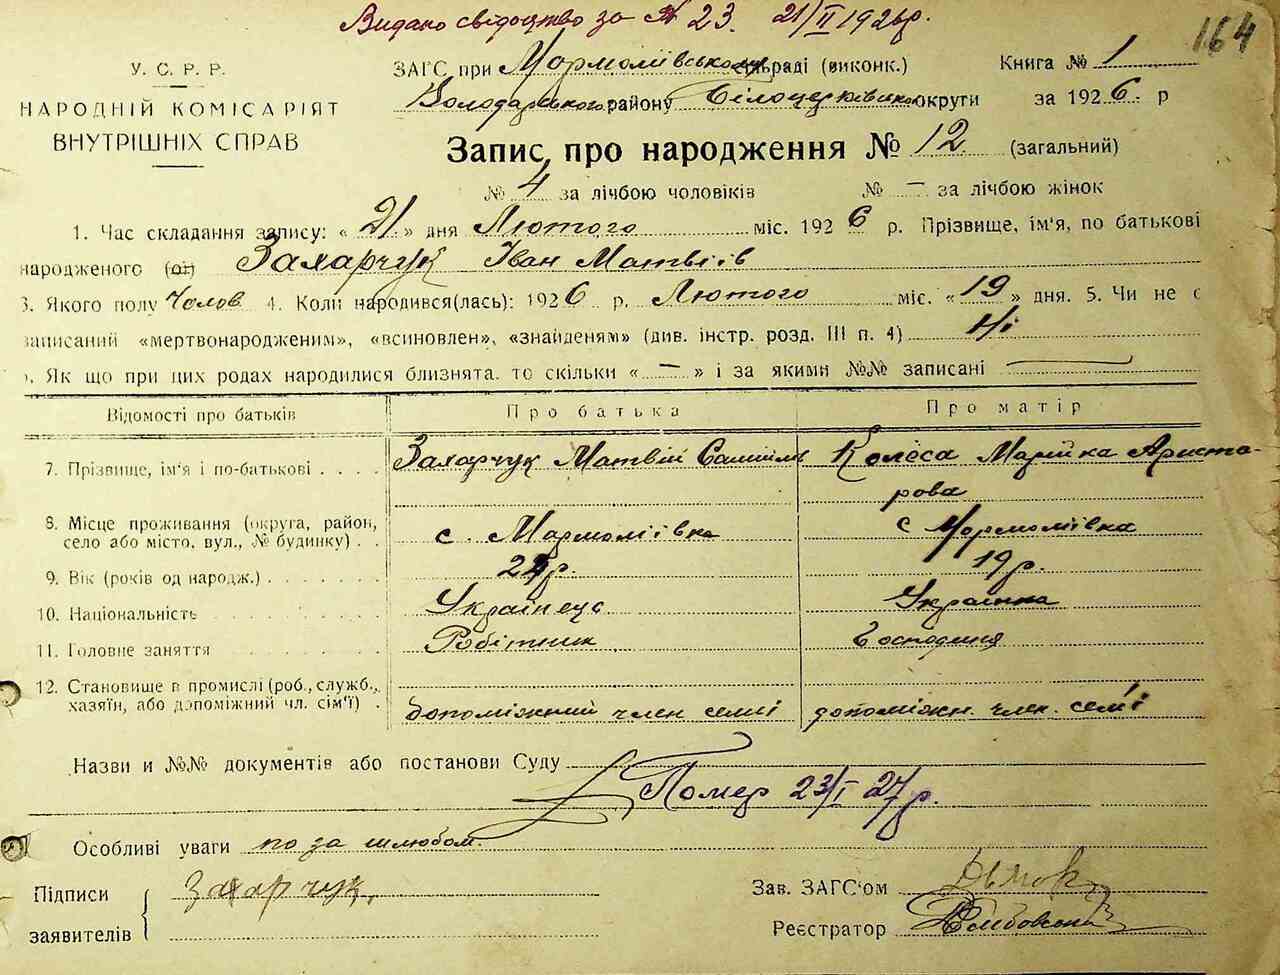 Видано свідоцтво за № 23. 21/II 1926р.
164
У. С. Р. Р.
НАРОДНІЙ КОМІСАРІЯТ
ВНУТРІШНІХ СПРАВ
ЗАГС при Мармоліївському сільраді (виконк.)
Книга № 1
Володарського району Білоцерківсько округи за 1926 р
Запис про народження № 12 (загальний)
№ 4 за лічбою чоловіків № — за лічбою жінок
1. Час складання запису: « 21 » дня Лютого міс. 1926 р. Прізвище, ім'я, по батькові
народженого (ої) Захарчук Іван Матвіїв
3. Якого полу Чолов 4. Коли народився(лась): 1926 р. Лютого міс. « 19 » дня. 5. Чи не є
записаний «мертвонародженим», «всиновлен», «знайденям» (див. інстр. розд. III п. 4) Ні
Як що при цих родах народилися близнята. то скільки « — » і за якими №№ записані —
Відомості про батьків
Про батька
Про матір
7. Прізвище, ім'я і по-батькові . . . .
Захарчук Матвій
Колеса МарійкаАриста-
рова
8. Місце проживання (округа, район,
село або місто, вул., № будинку) . .
с. Мармоліївка
с Мармоліївка
9. Вік (років од народж.) . . . . . . .
р.
19 р.
10. Національність . . . . . . . . . .
Українець
Українка
11. Головне заняття . . . . . . . . .
Робітник
Господиня
12. Становище в промислі (роб., служб.,
хазяїн, або допоміжний чл. сім'ї) .
допоміжний член семії
допоміжн. член. сем'ї
Назви и №№ документів або постанови Суду
Помер 23/I 27р.
Особливі уваги по за шлюбом.
Підписи
заявителів
Захарчук,
Зав. ЗАГС'ом
Реєстратор